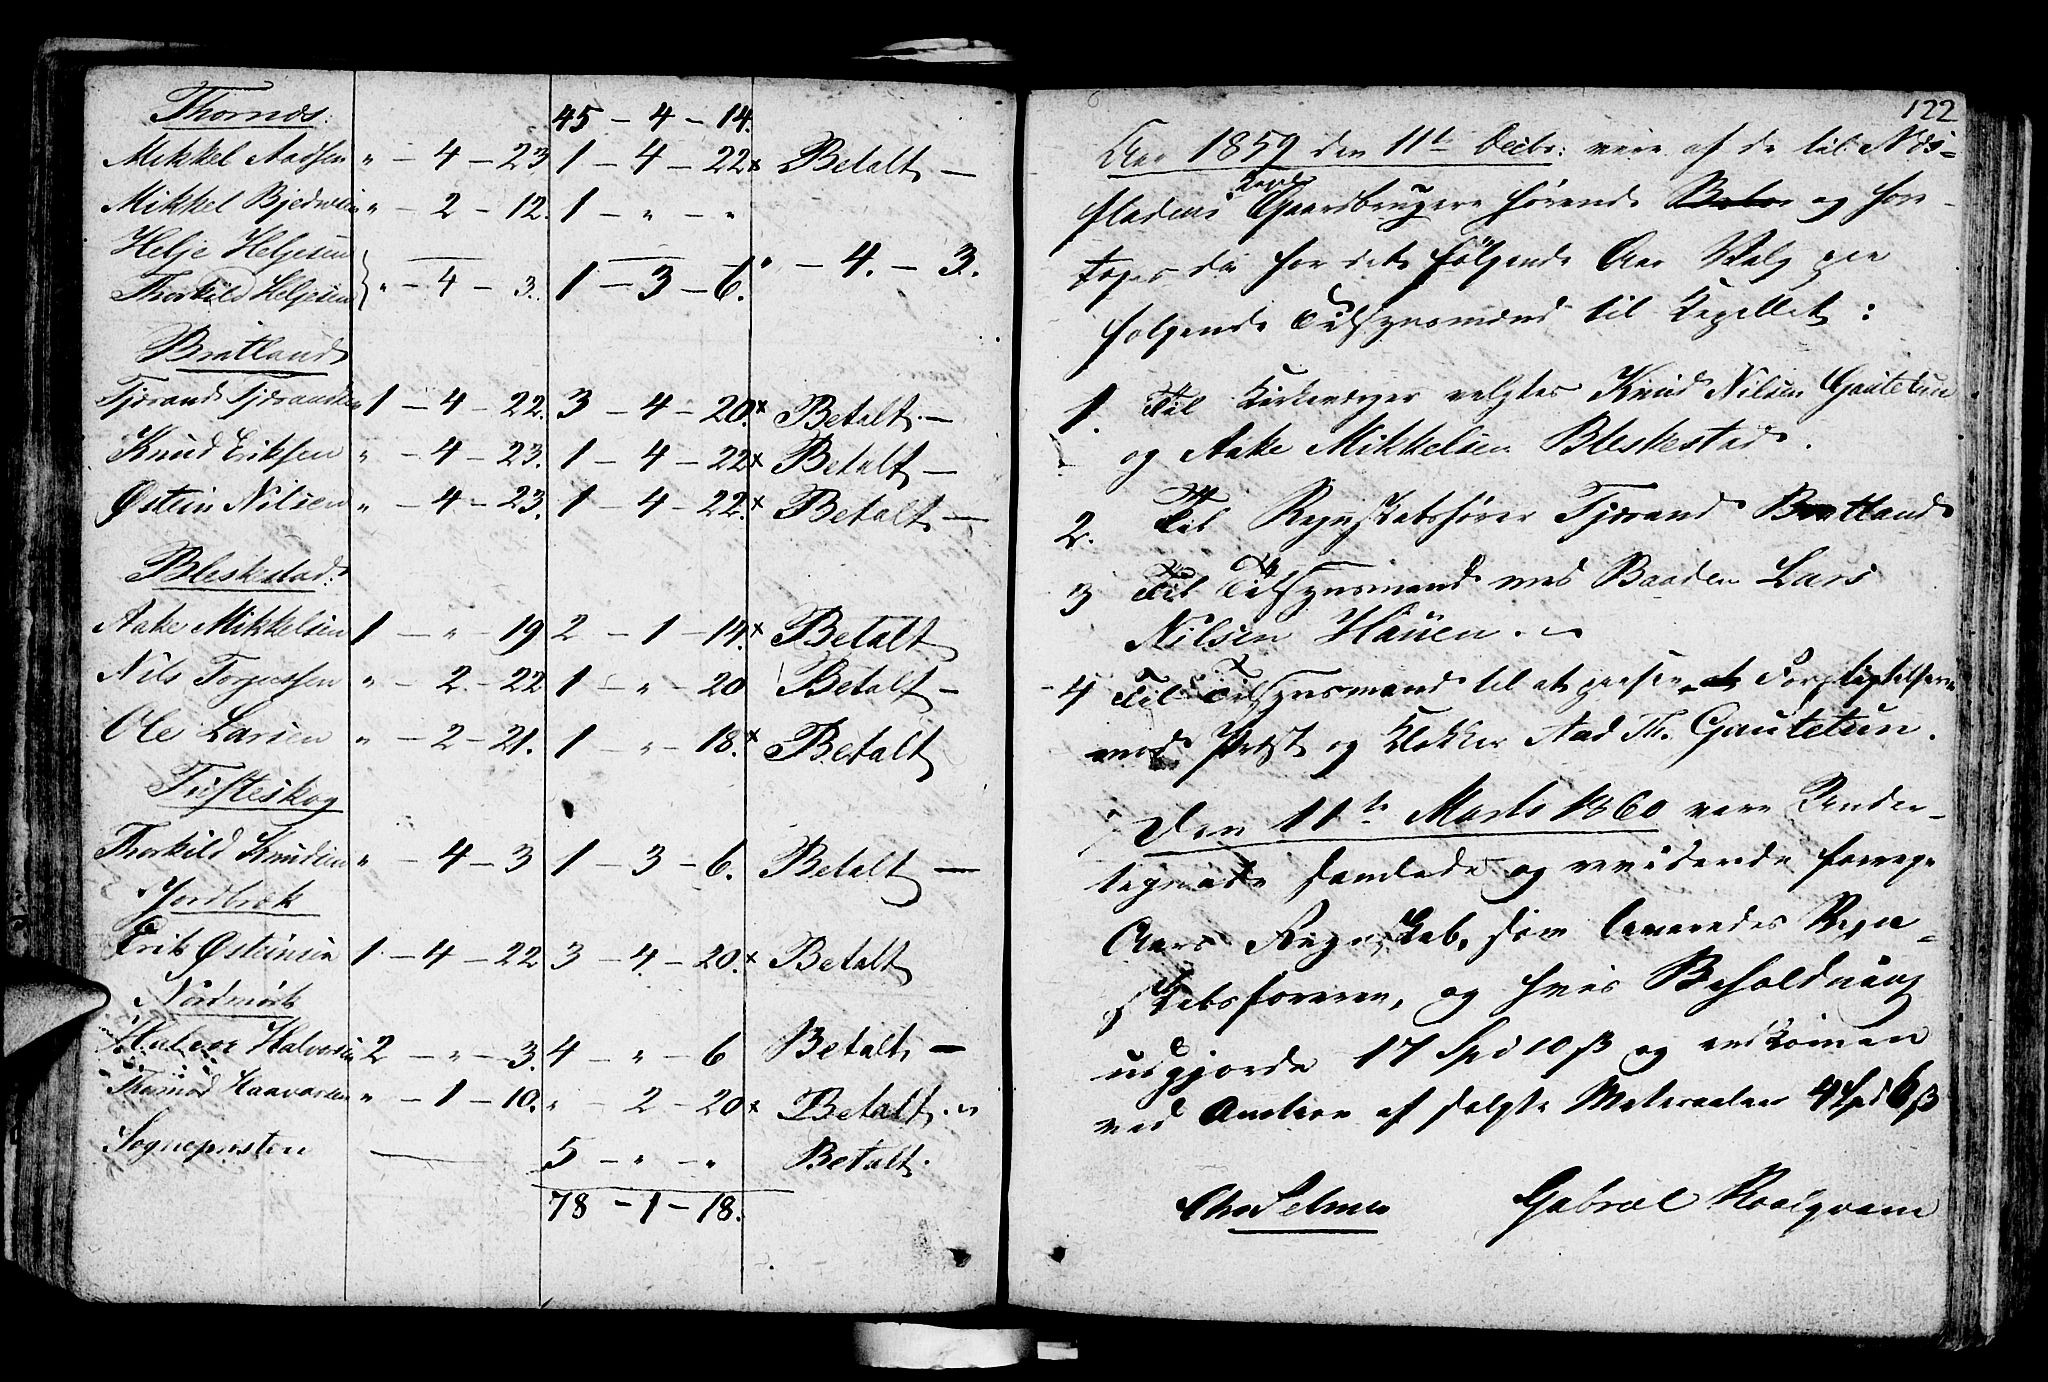 Thornæs.
45 - 4 - 14.
Mikkel Aadsen " - 4 - 23 1 - 4 - 22 x Betalt -
Mikkel Bjednsen " - 2 - 12. 1 - " - "
Helje Heljesen
Thorkild Heljesen " - 4 - 3. 1 - 3 - 6. " - 4. - 3.
Bratland
Tjærand Tjærandsen 1 - 4 - 22. 3 - 4 - 20. x Betalt. -
Knud Eriksen " - 4 - 23. 1 - 4 - 22 x Betalt -
Østein Nilsen " - 4 - 23. 1 - 4 - 22. x Betalt -
Bleskestad.
Aake Mikkelsen 1 - " - 19 2 - 1 - 14. x Betalt
Nils Torgersen " - 2 - 22 1 - " - 20 Betalt -
Ole Larsen " - 2 - 21. 1 - " - 18. x Betalt
Tufteskog
Thorkild Knudsen " - 4 - 3 1 - 3 - 6. Betalt -
Jordbræk
Erik Østeinsen 1 - 4 - 22 3 - 4 - 20. x Betalt
Nordmork
Halvorsen 2 - " - 3. 4 - " - 6 Betalt -
Thormod Haavarsen " - 1 - 10. " - 2 - 20 x Betalt.
Sognepresten 5 - " - " Betalt.
78 - 1 - 18.
122
Aar 1859 den 11te Decbr: vare af de til Næs-
fladens Gaardbrugere hørende og fore-
toges da for det følgende Aar Valg paa
følgende Tilsynsmænd til Capellet:
1. Til Kirkeværger valgtes Knud Nilsen Gautetun
og Aake Mikkelsen Bleskestad.
2. Til Regnskabsfører Tjærand Bratland
3 Til Tilsynsmand med Baaden Lars
Nilsen Hauen.
4 Til Tilsynsmand til at passe Forpligtelserne
mod Præst og Klokker Aad Th. Gautetun.
Den 11te Marts 1860 vare Under-
tegnede samlede og reviderede forrige
Aars Regnskab, som leveredes Regn-
skabsføreren, og hvis Beholdning
udgjorde 17 Spd 10 ß og indkommen
ved Auction af solgte Materialer 4 Spd 6 ß
Chr Selmer Gabriel Roalqvam